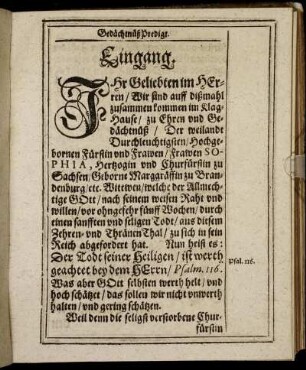 Gedächtnüß Predigt.
Eingang.
IHr Geliebten im HEr-
ren / Wir sind auff dißmahl
zusammen kommen im Klag-
Hause / zu Ehren und Ge-
dächtnüß / Der weilandt
Durchleuchtigsten / Hochge-
bornen Fürstin und Frawen / Frawen SO-
PHIA, Hertzogin und Churfürstin zu
Sachsen / Geborne Marggräffin zu Bran-
denburg / etc. Wittwen / welche der Allmech-
tige GOtt / nach seinem weisen Raht und
willen / vor ohngefehr fünff Wochen / durch
einen sanfften und seligen Todt / aus diesem
Zehren- und ThränenThal / zu sich in sein
Reich abgefordert hat. Nun heist es:
Der Todt seiner Heiligen / ist werth
geachtet bey dem HErrn / Psalm. 116.
Psal. 116.
Was aber GOtt selbsten werth helt / und
hoch schätzet / das sollen wir nicht unwerth
halten / und gering schätzen.
Weil denn die seligst verstorbene Chur-
fürstin